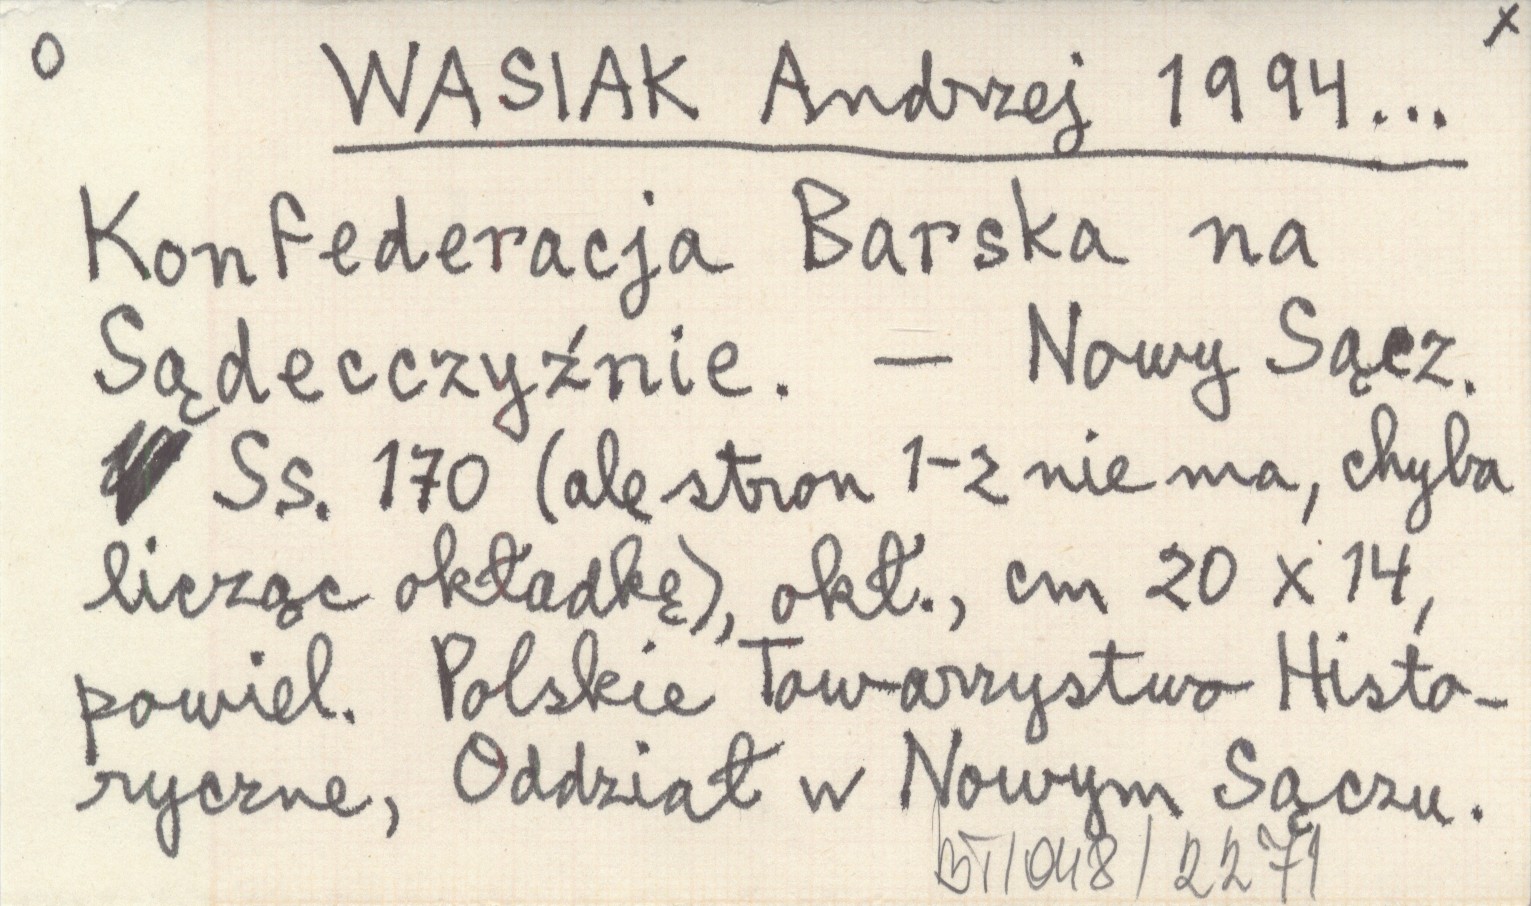 O x
WASIAK Andrzej 1994...
Konfederacja Barska na
Sądecczyźnie. — Nowy Sącz.
Ss. 170 (ale stron 1-2 nie ma, chyba
licząc okładkę), okł., cm 20 x 14,
powiel. Polskie Towarzystwo Histo-
ryczne, Oddział w Nowym Sączu.
BT/048/2271